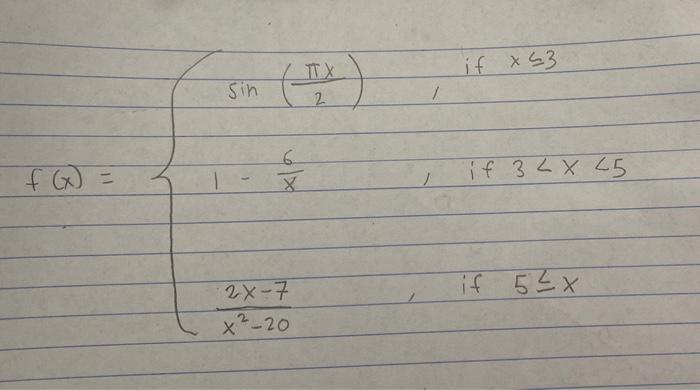 sin (πx/2) , if x ≤ 3
f(x) = { 1 - 6/x , if 3 < x < 5
2x-7/x²-20 , if 5 ≤ x